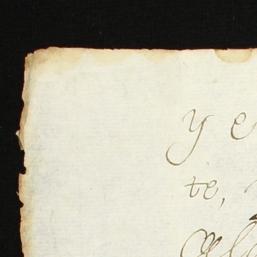 y e
te,